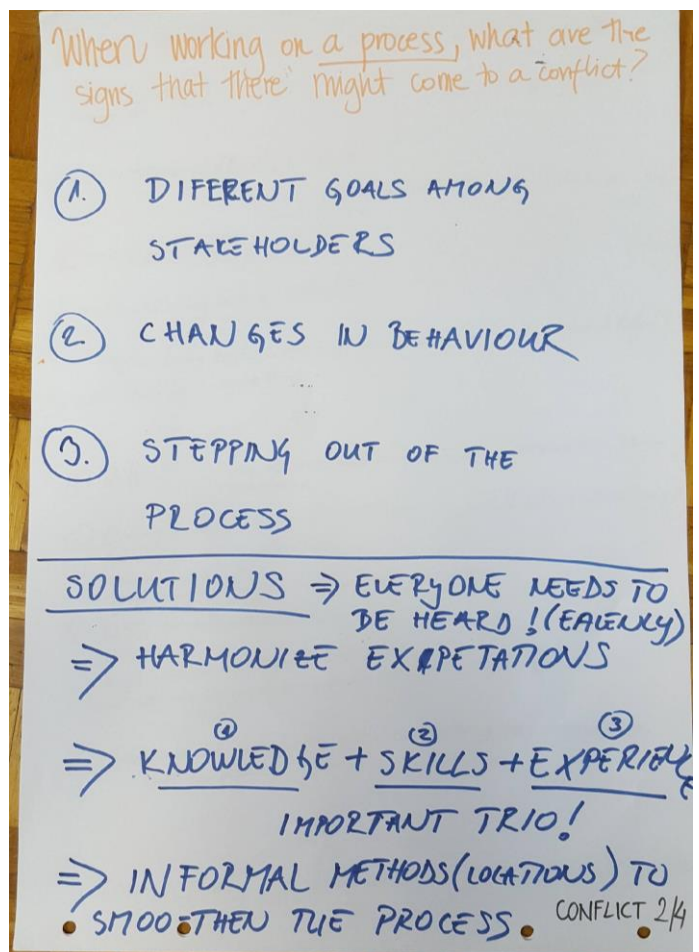 When working on a process, what are the
signs that there might come to a conflict?
1. DIFERENT GOALS AMONG
STAKEHOLDERS
2. CHANGES IN BEHAVIOUR
3. STEPPING OUT OF THE
PROCESS
SOLUTIONS ⇒ EVERYONE NEEDS TO
BE HEARD! (EALENLY)
⇒ HARMONIZE EXPETATIONS
① ② ③
⇒ KNOWLEDGE + SKILLS + EXPERIENCE
IMPORTANT TRIO!
⇒ INFORMAL METHODS (LOCATIONS) TO
SMOOETHEN THE PROCESS.
CONFLICT 2/4